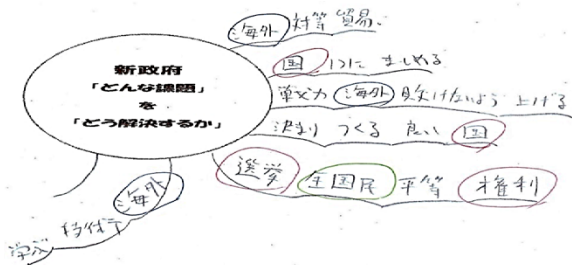 新政府
「どんな課題」
を
「どう解決するか」
海外 対等 貿易
国 1つに まとめる
戦力 海外 負けないよう 上げる
決まり つくる 良い 国
選挙 全国民 平等 権利
海外
学ぶ